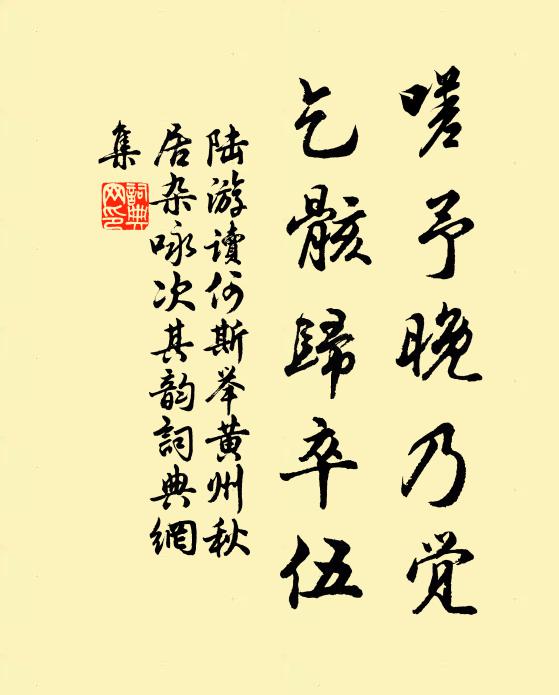 嗟予晚乃觉
乞骸歸卒伍
陆游讀何斯举黄州秋
居杂咏次其韵詞典網
集
詞典
网印